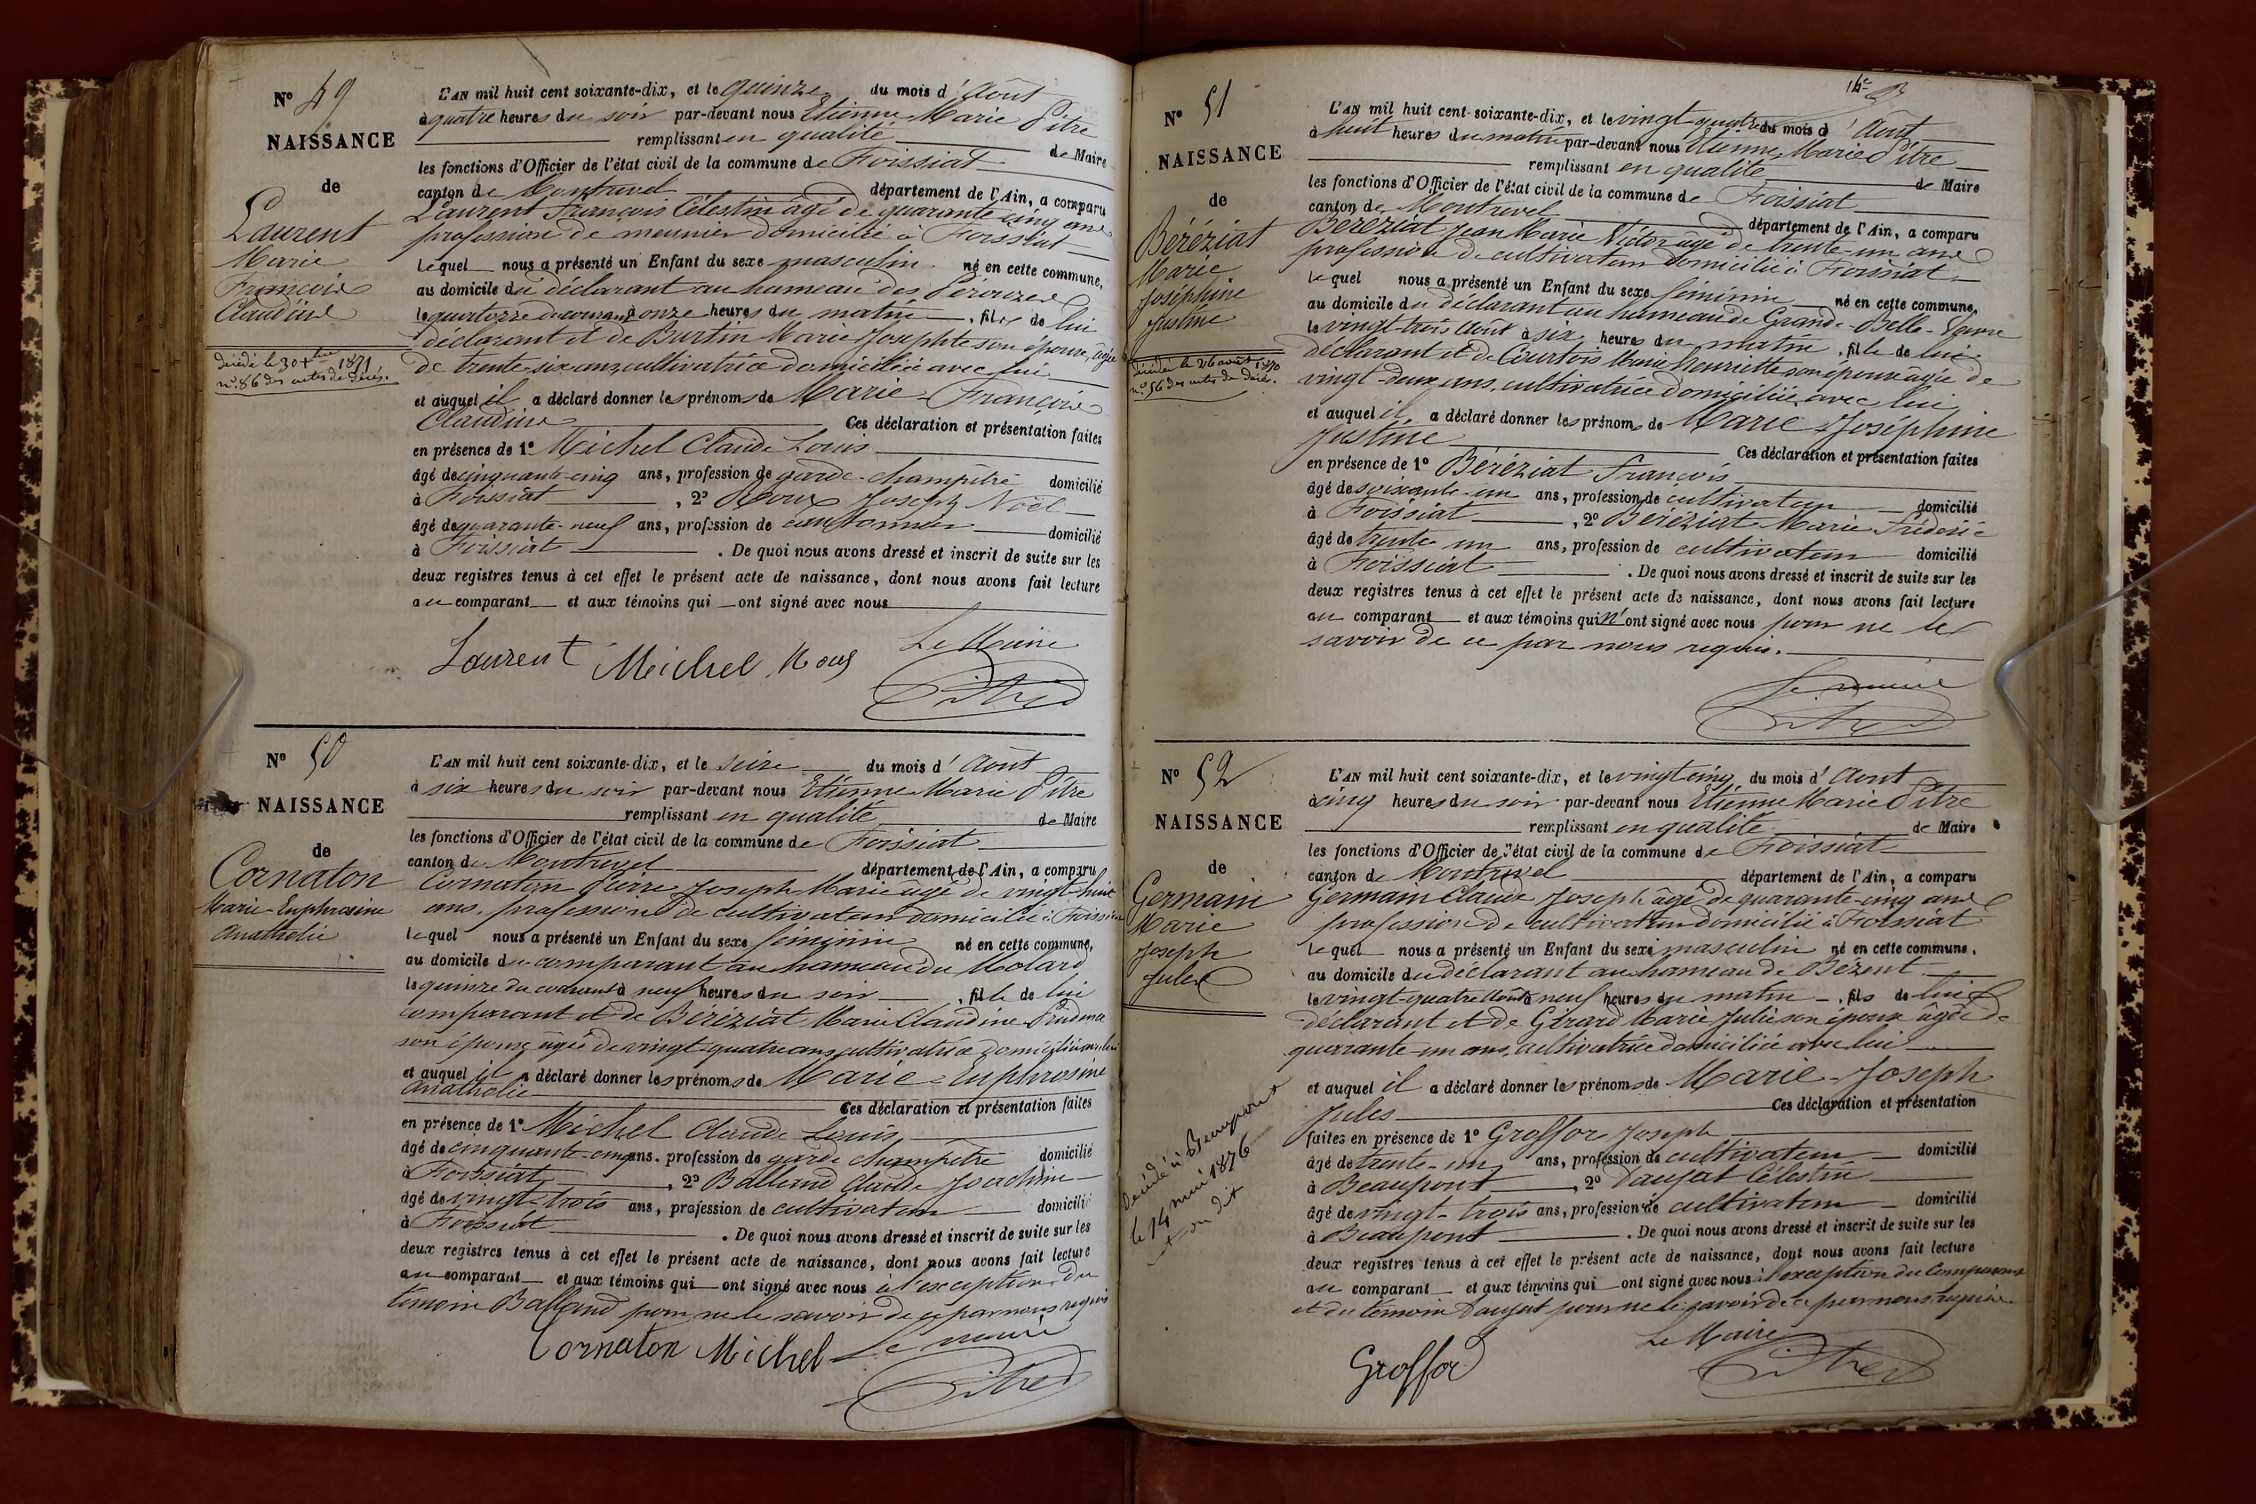 Nº 49
NAISSANCE
de
Laurent
Marie
François
Claudius
décédé le 30 1871
nº 86 des actes de décès.
L'AN mil huit cent soixante-dix, et le quinze du mois d'Août
à quatre heures du soir par-devant nous Etienne Marie Pitre
remplissant en qualité de Maire
les fonctions d'Officier de l'état civil de la commune de Foissiat
canton de Montrevel département de l'Ain, a comparu
Laurent François Célestin âgé de quarante cinq ans
profession de meunier domicilié à Foissiat
lequel nous a présenté un Enfant du sexe masculin né en cette commune,
au domicile du déclarant au hameau des
le quatorze du courant à onze heures du matin, fils de lui
déclarant et de Burtin Marie Josephte son épouse, âgée
de trente-six ans cultivatrice domiciliée avec lui
et auquel il a déclaré donner les prénoms de Marie-François
Claudius Ces déclaration et présentation faites
en présence de 1º Michel Claude Louis
âgé de cinquante-cinq ans, profession de garde-champêtre domicilié
à Foissiat, 2º Roux Joseph Noël
âgé de quarante-neuf ans, profession de cantonnier domicilié
à Foissiat. De quoi nous avons dressé et inscrit de suite sur les
deux registres tenus à cet effet le présent acte de naissance, dont nous avons fait lecture
au comparant et aux témoins qui ont signé avec nous
Le Maire
Laurent Michel Roux
Pitre
Nº 50
NAISSANCE
de
Cornaton
Marie-Euphrosine
Anathalie
L'AN mil huit cent soixante-dix, et le seize du mois d'Août
à six heures du soir par-devant nous Etienne Marie Pitre
remplissant en qualité de Maire
les fonctions d'Officier de l'état civil de la commune de Foissiat
canton de Montrevel département de l'Ain, a comparu
Cornaton Pierre Joseph Marie âgé de vingt-huit
ans, profession de cultivateur domicilié à Foissiat
lequel nous a présenté un Enfant du sexe féminin né en cette commune,
au domicile du comparant au hameau du Molard
le quinze du courant à neuf heures du soir, fille de lui
comparant et de Béréziat Marie Claudine
son épouse âgée de vingt-quatre ans cultivatrice domiciliée avec lui
et auquel il a déclaré donner les prénoms de Marie-Euphrosine
Anathalie Ces déclaration et présentation faites
en présence de 1º Michel Claude Louis
âgé de cinquante-cinq ans, profession de garde champêtre domicilié
à Foissiat, 2º Balland Claude Joachim
âgé de vingt-trois ans, profession de cultivateur domicilié
à Foissiat. De quoi nous avons dressé et inscrit de suite sur les
deux registres tenus à cet effet le présent acte de naissance, dont nous avons fait lecture
au comparant et aux témoins qui ont signé avec nous à l'exception du
témoin Balland pour ne le savoir de ce par nous requis
Cornaton Michel Le maire
Pitre
Nº 51
NAISSANCE
de
Béréziat
Marie
Joséphine
Justine
décédée le 26 août 1870
nº 56 des actes de décès.
L'AN mil huit cent soixante-dix, et le vingt quatre du mois d'Août
à huit heures du matin par-devant nous Etienne Marie Pitre
remplissant en qualité de Maire
les fonctions d'Officier de l'état civil de la commune de Foissiat
canton de Montrevel département de l'Ain, a comparu
Béréziat Jean Marie Victor âgé de trente-un ans
profession de cultivateur domicilié à Foissiat
lequel nous a présenté un Enfant du sexe féminin né en cette commune,
au domicile du déclarant au hameau de Grande
le vingt-trois août à six heures du matin, fille de lui
déclarant et de Courtois Marie Henriette son épouse âgée de
vingt-deux ans, cultivatrice domiciliée avec lui
et auquel il a déclaré donner les prénoms de Marie-Joséphine
Justine Ces déclaration et présentation faites
en présence de 1º Béréziat François
âgé de soixante-un ans, profession de cultivateur domicilié
à Foissiat, 2º Béréziat Marie Fréderic
âgé de trente-un ans, profession de cultivateur domicilié
à Foissiat. De quoi nous avons dressé et inscrit de suite sur les
deux registres tenus à cet effet le présent acte de naissance, dont nous avons fait lecture
au comparant et aux témoins qui n'ont signé avec nous pour ne le
savoir de ce par nous requis.
Le maire
Pitre
Nº 52
NAISSANCE
de
Germain
Marie
Joseph
Jules
Décédé à Beaupont
le 14 mai 1876
L'AN mil huit cent soixante-dix, et le vingt cinq du mois d'Août
à cinq heures du soir par-devant nous Etienne Marie Pitre
remplissant en qualité de Maire
les fonctions d'Officier de l'état civil de la commune de Foissiat
canton de Montrevel département de l'Ain, a comparu
Germain Claude Joseph âgé de quarante-cinq ans
profession de cultivateur domicilié à Foissiat
lequel nous a présenté un Enfant du sexe masculin né en cette commune,
au domicile du déclarant au hameau de Bézent
le vingt-quatre Août à neuf heures du matin, fils de lui
déclarant et de Gérard Marie Julie son épouse âgée de
quarante-un ans, cultivatrice domiciliée avec lui
et auquel il a déclaré donner les prénoms de Marie-Joseph
Jules Ces déclaration et présentation
faites en présence de 1º Groffor Joseph
âgé de trente-un ans, profession de cultivateur domicilié
à Beaupont, 2º Daujat Célestin
âgé de vingt-trois ans, profession de cultivateur domicilié
à Beaupont. De quoi nous avons dressé et inscrit de suite sur les
deux registres tenus à cet effet le présent acte de naissance, dont nous avons fait lecture
au comparant et aux témoins qui ont signé avec nous à l'exception du Comparant
et du témoin Daujat pour ne le savoir de ce par nous requis
Le Maire
Groffor Pitre